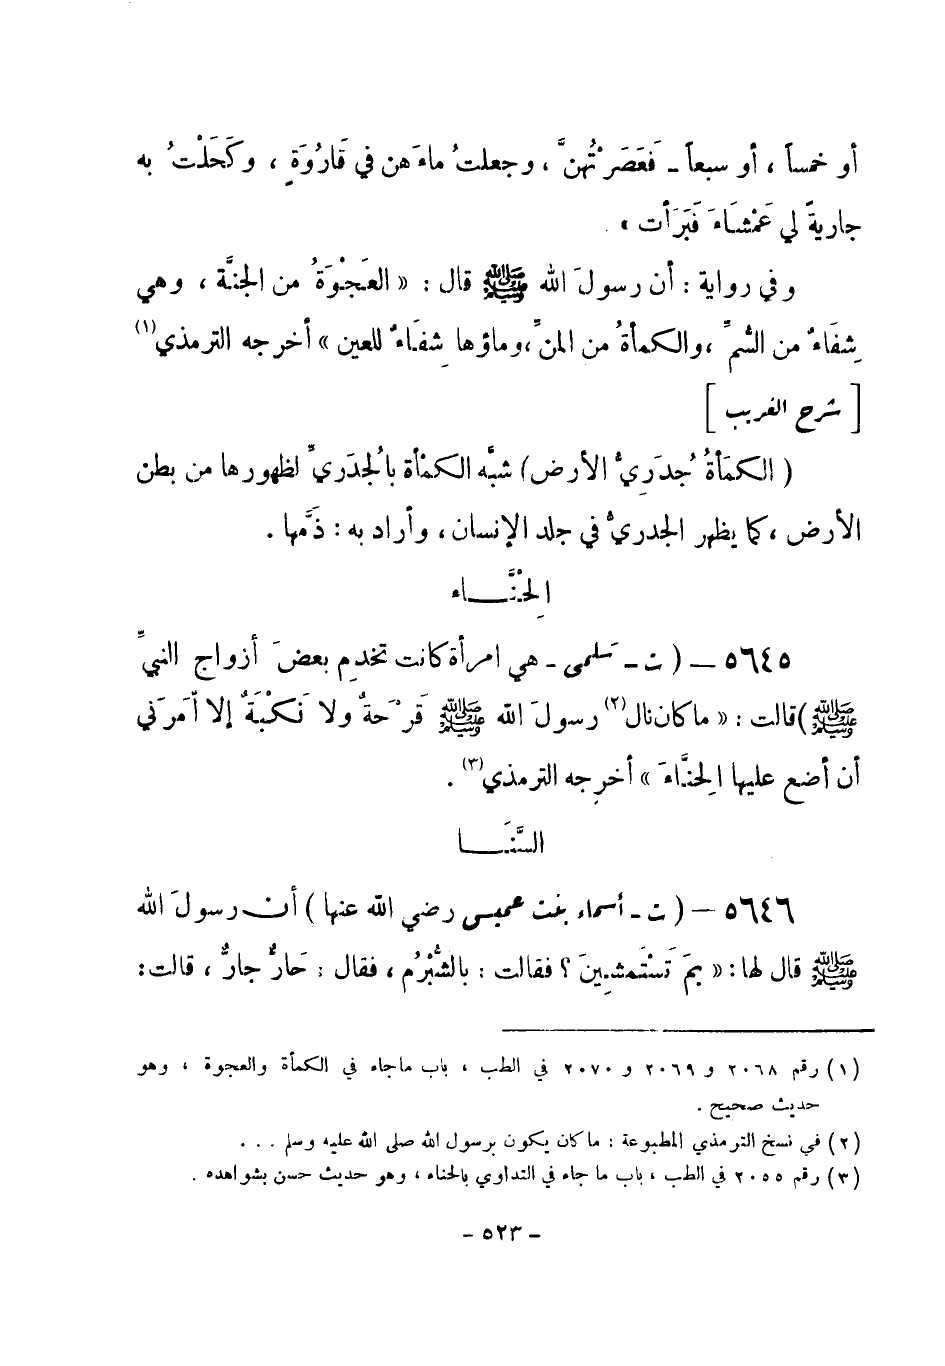 أو خمساً ، أو سبعاً - فَعَصَرْتُهنَّ ، وجعلتُ ماءَهن في قَارُوَةٍ ، وكَحَلْتُ به
جاريةً لي عَمْشَاءَ فَبَرَأت » .
وفي رواية : أن رسولَ الله ﷺ قال : « العَجْوَةُ من الجنَّة ، وهي
شِفَاءٌ من السُّمِّ ، والكمأةُ من المنِّ ، وماؤها شِفَاءٌ للعين » أخرجه الترمذي(١)
[ شرح الغريب ]
( الكمَأةُ جُدَرِيُّ الأرض ) شبَّه الكمْأة بالُجدَريِّ لظهورها من بطن
الأرض ، كما يظهر الجدريُّ في جلد الإنسان ، وأراد به : ذَمَّها .
الِحنَّـــاء
٥٦٤٥ — ( ت - سَلمى - هي امرأة كانت تخدم بعضَ أزواج النبيِّ
ﷺ ) قالت : « ما كان نال(٢) رسولَ الله ﷺ قَرْحَةٌ ولا نَكْبَةٌ إلا أمَرَني
أن أضع عليها الِحنَّاءَ » أخرجه الترمذي(٣) .
السَّنَـــا
٥٦٤٦ — ( ت - أسماء بنت عميس رضي الله عنها ) أن رسولَ الله
ﷺ قال لها : « بمَ تَسْتَمشِينَ ؟ فقالت : بالشُّبْرُم ، فقال : حَارٌّ جارٌّ ، قالت :
(١) رقم ٢٠٦٨ و ٢٠٦٩ و ٢٠٧٠ في الطب ، باب ماجاء في الكمأة والعجوة ، وهو
حديث صحيح .
(٢) في نسخ الترمذي المطبوعة : ما كان يكون برسول الله صلى الله عليه وسلم ...
(٣) رقم ٢٠٥٥ في الطب ، باب ما جاء في التداوي بالحناء ، وهو حديث حسن بشواهده .
- ٥٢٣ -